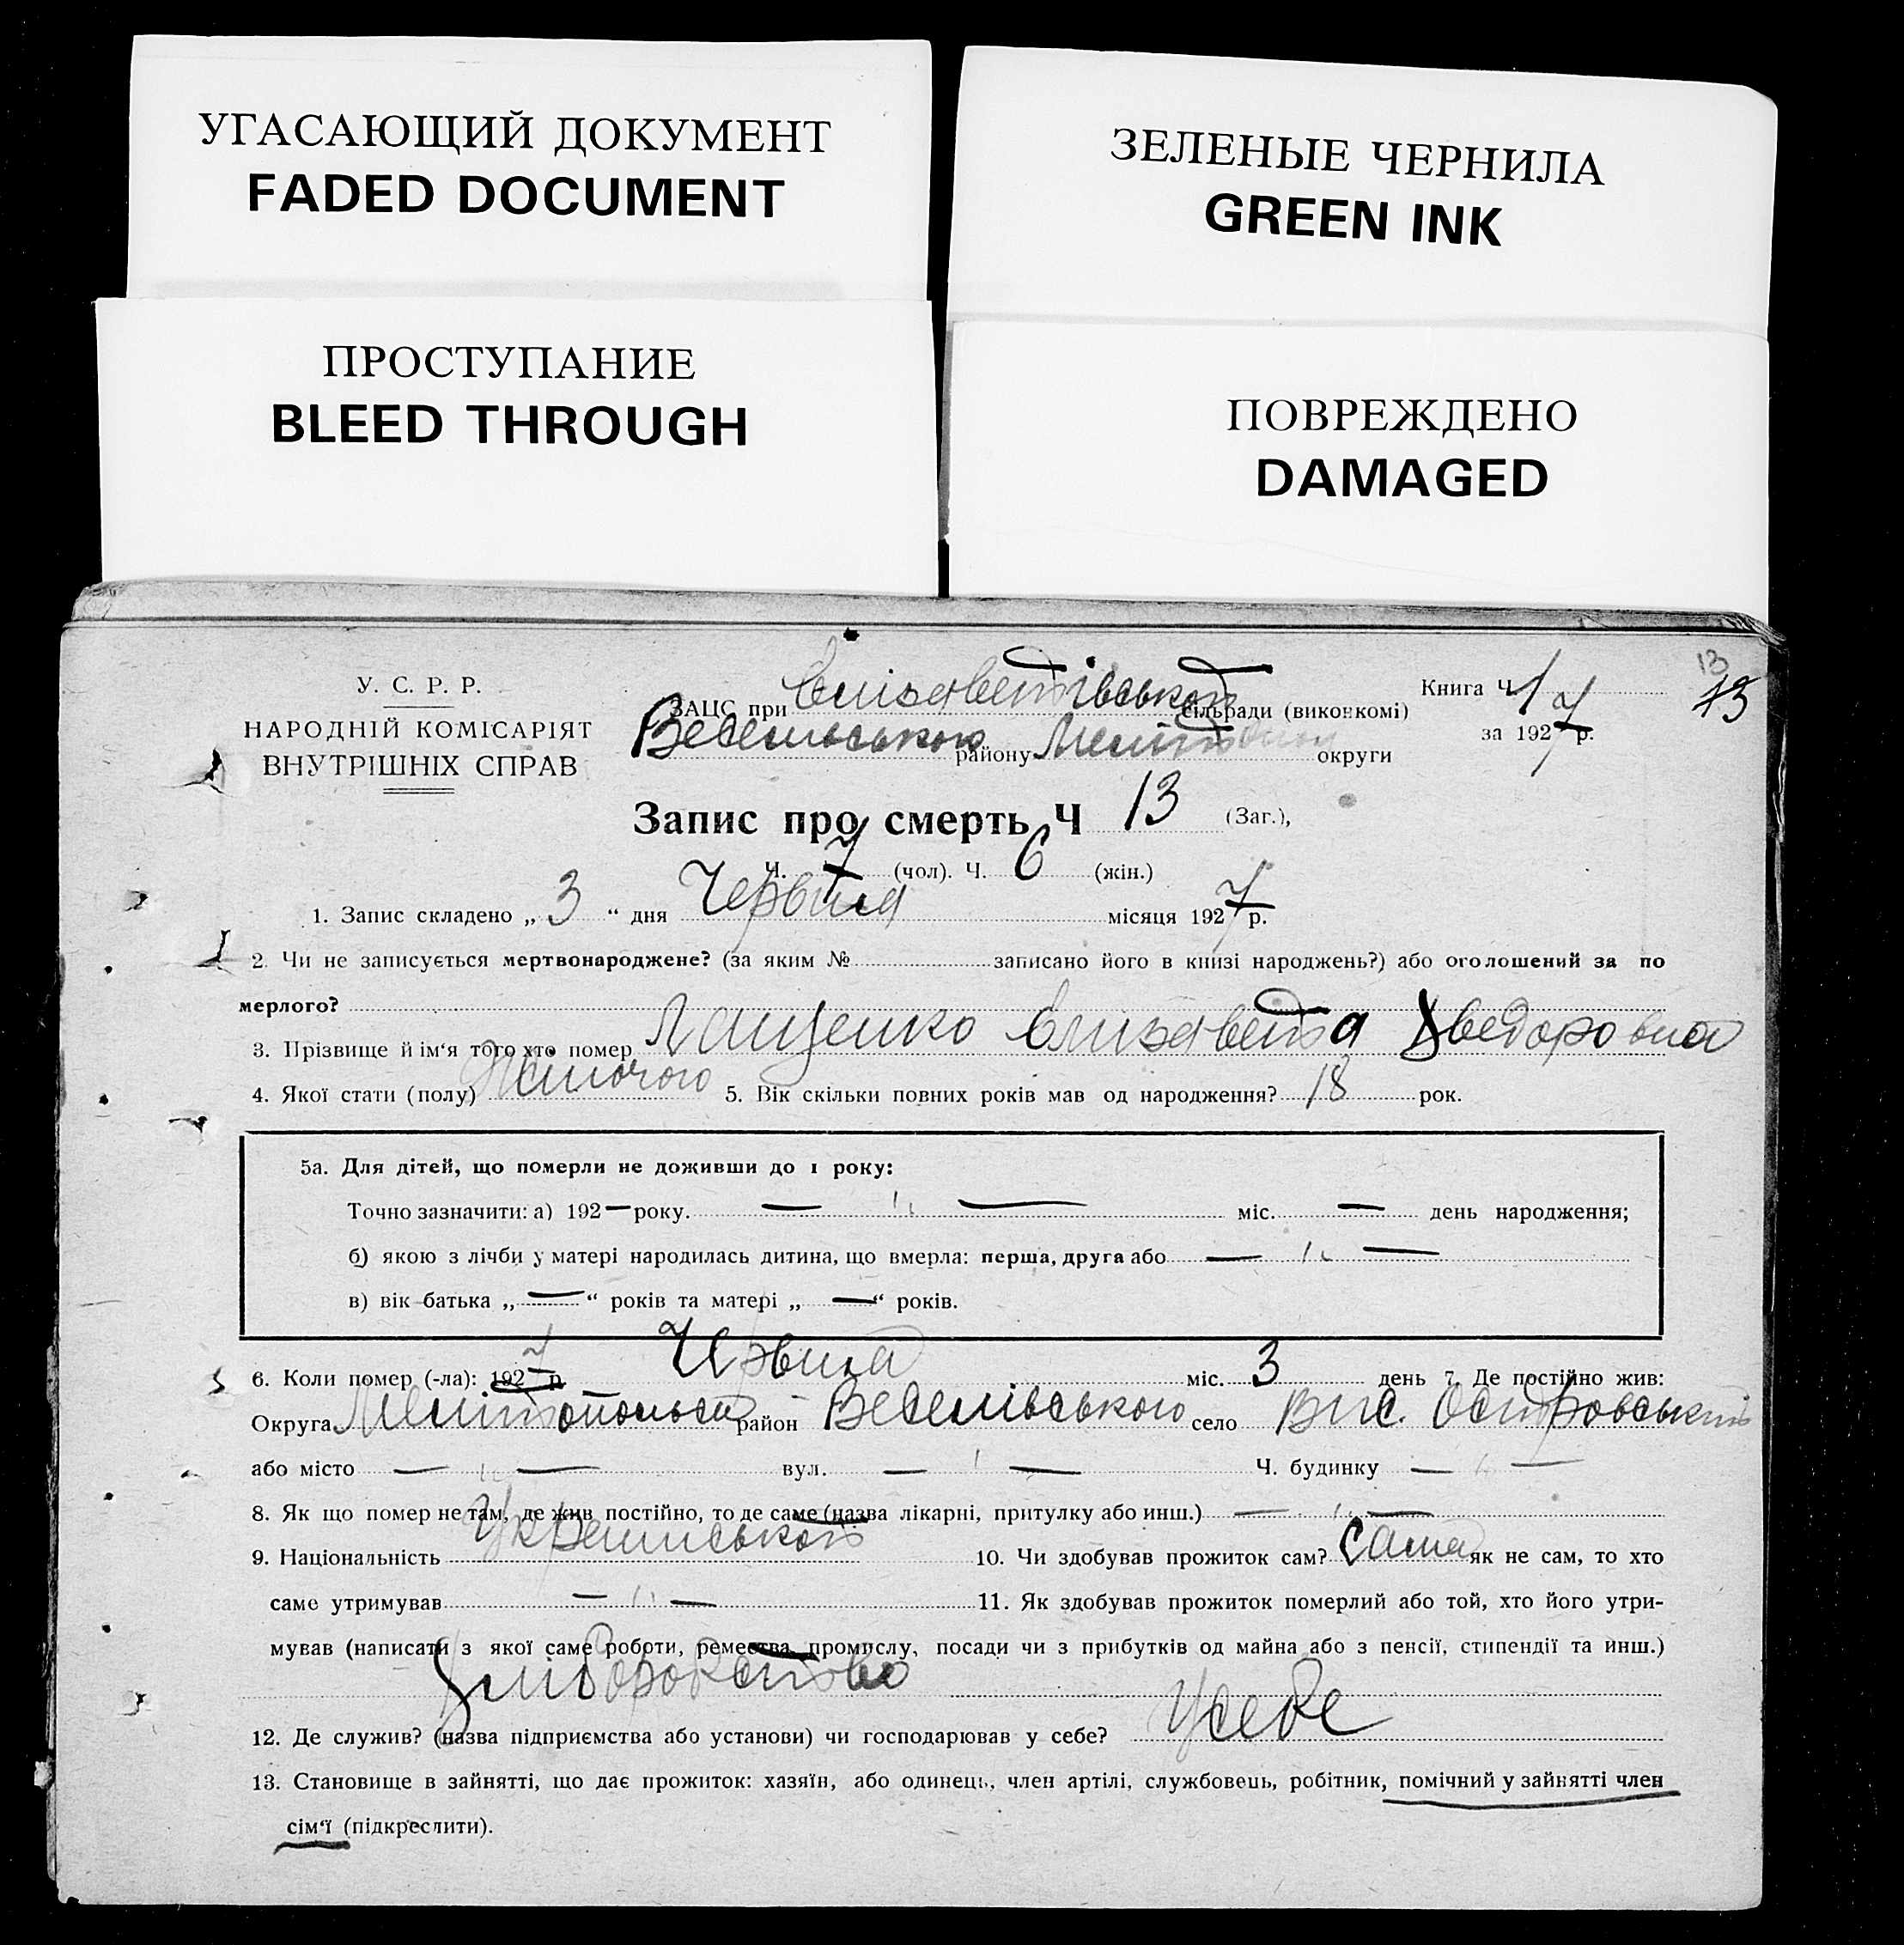 УГАСАЮЩИЙ ДОКУМЕНТ
FADED DOCUMENT
ЗЕЛЕНЫЕ ЧЕРНИЛА
GREEN INK
ПРОСТУПАНИЕ
BLEED THROUGH
ПОВРЕЖДЕНО
DAMAGED
13
У. С. Р. Р.
НАРОДНІЙ КОМІСАРІЯТ
ВНУТРІШНІХ СПРАВ
ЗАЦС при Єлізаветівськой сільради (виконкомі)
Веселівського району округи
Книга Ч 1 13
за 1927 р.
Запис про смерть Ч 13 (Заг.),
Ч. 7 (чол). Ч. 6 (жін.)
1. Запис складено „ 3 “ дня Червня місяця 1927 р.
2. Чи не записується мертвонароджене? (за яким № записано його в книзі народжень?) або оголошений за по
мерлого?
3. Прізвище й ім'я того хто помер Лащенко Єлизавета Хведоровна
4. Якої стати (полу) Жіночого 5. Вік скільки повних років мав од народження? 18 рок.
5а. Для дітей, що померли не доживши до 1 року:
Точно зазначити: а) 192 — року. — „ — міс. — день народження;
б) якою з лічби у матері народилась дитина, що вмерла: перша, друга або — „ —
в) вік батька „ — “ років та матері „ — “ років.
6. Коли помер (-ла): 1927 р. Червня міс. 3 день 7. Де постійно жив:
Округа район Веселівського село Вис. Островський
або місто — „ — вул. — „ — Ч. будинку — „ —
8. Як що помер не там, де жив постійно, то де саме (назва лікарні, притулку або инш.) — „ —
9. Національність 10. Чи здобував прожиток сам? Сама як не сам, то хто
саме утримував — „ — 11. Як здобував прожиток померлий або той, хто його утри-
мував (написати з якої саме роботи, ремества, промислу, посади чи з прибутків од майна або з пенсії, стипендії та инш.)
Хліборобство
12. Де служив? (назва підприємства або установи) чи господарював у себе? У себе
13. Становище в зайнятті, що дає прожиток: хазяїн, або одинець, член артілі, службовець, робітник, помічний у зайнятті член
сім'ї (підкреслити).